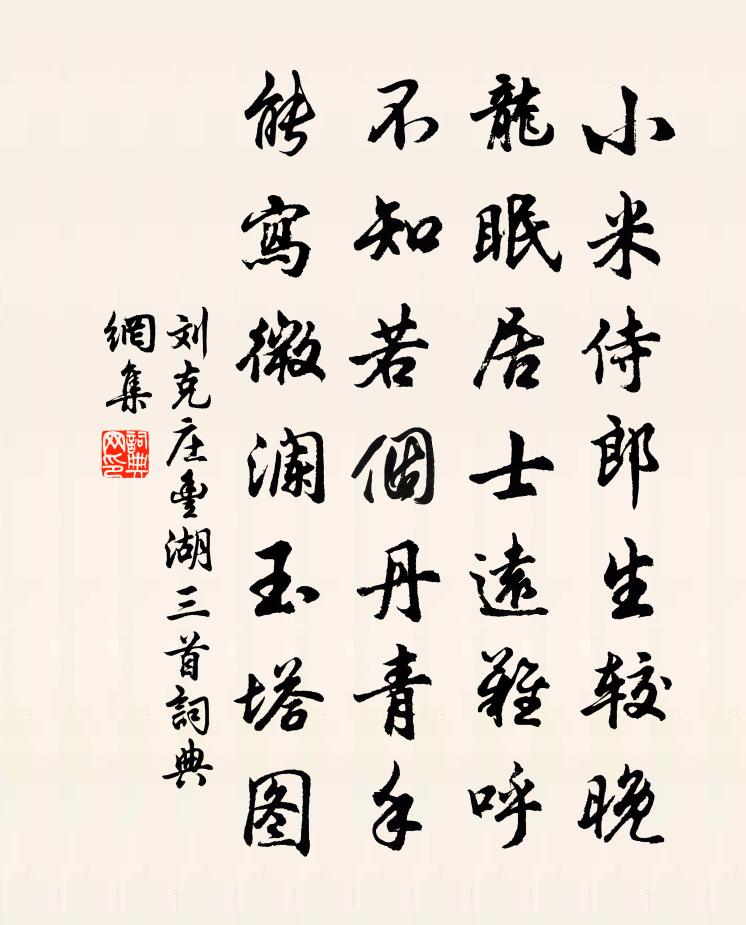 小米侍郎生较晚
龍眠居士遠難呼
不知若個丹青手
能寫微澜玉塔图
刘克庄豊湖三首詞典
網集
詞典
网印